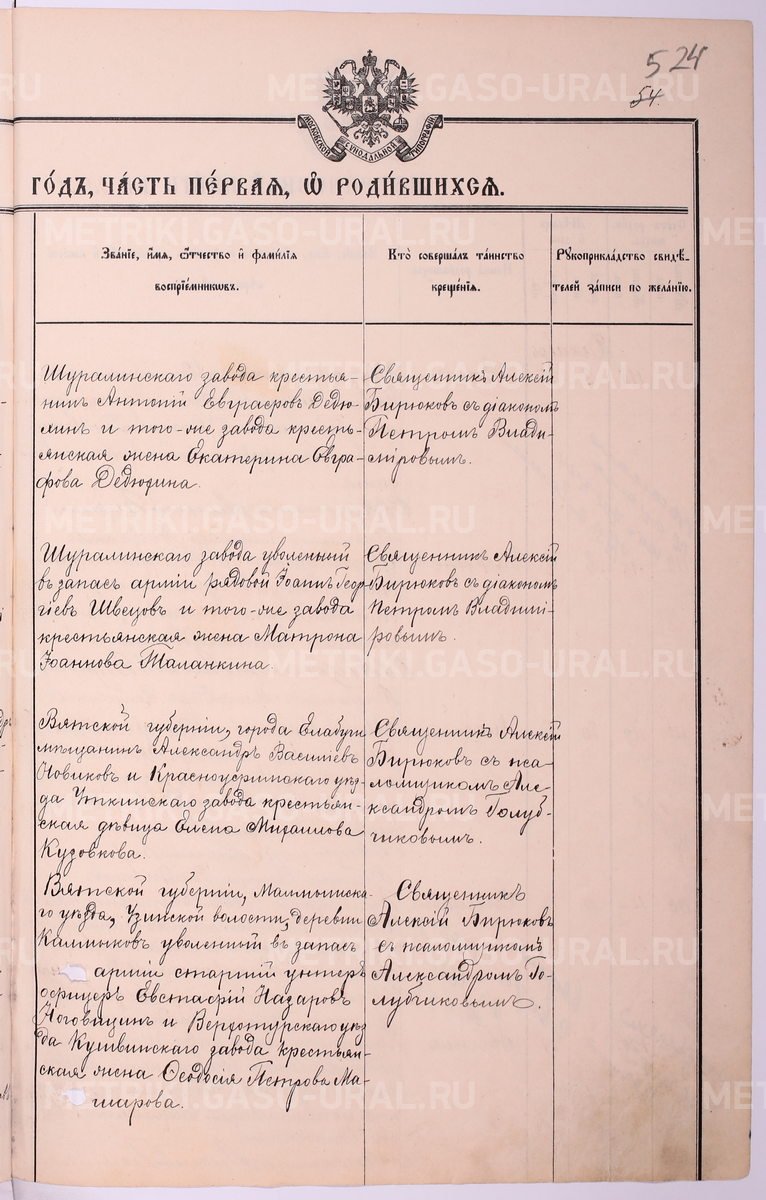 524
54.
МОСКОВСКОЙ СѴНОДАЛЬНОЙ ТИПОГРАФІИ
ГО́ДЪ, ЧА́СТЬ ПЕ́РВАѦ, Ѡ҆ РОДИ́ВШИХСѦ.
Зва́нїе, и҆́мѧ, ѻ҆́тчество и҆ фами́лїѧ
воспрїе́мникѡвъ.
Кто̀ соверша́лъ та́инство
креще́нїѧ.
Рꙋкоприкла́дство свидѣ́-
телей за́писи по жела́нїю.
Шуралинскаго завода крестья-
нинъ Антоній Евграфовъ Дедю-
хинъ и того-же завода кресть-
янская жена Екатерина Евгра-
фова Дедюхина.
Священникъ Алексій
Бирюковъ съ діакономъ
Петромъ Влади-
міровымъ.
Шуралинскаго завода уволенный
въ запасъ арміи рядовой Іоаннъ Геор-
гіевъ Швецовъ и того-же завода
крестьянская жена Матрона
Іоаннова Таланкина.
Священникъ Алексій
Бирюковъ съ діакономъ
Петромъ Владимі-
ровымъ.
Вятской губерніи, города Елабуги
мѣщанинъ Александръ Васильевъ
Новиковъ и Красноуфимскаго уѣз-
да Уткинскаго завода крестьян-
ская дѣвица Елена Михаилова
Кузовкова.
Священникъ Алексій
Бирюковъ съ пса-
ломщикомъ Але-
ксандромъ Голуб-
чиковымъ.
Вятской губерніи, Малмыжска-
го уѣзда, Узинской волости, деревни
уволенный въ запасъ
арміи старшій унтеръ
офицеръ Евстафій Назаровъ
Ноговицинъ и Верхотурскаго уѣз-
да Кушвинскаго завода крестьян-
ская жена Ѳеодосія Петрова Ма-
шарова.
Священникъ
Алексій Бирюковъ
съ псаломщикомъ
Александромъ Го-
лубчиковымъ.
METRIKI.GASO-URAL.RU